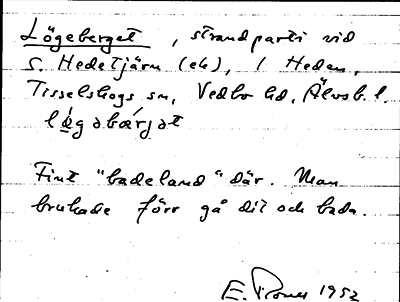 Lögeberget, strandparti vid
S. Hedetjärn (ek), / Heden,
Tisselskogs sn, Vedbo hd, Älvsb. l.
lǿgəbærjət
Fint "badeland" där. Man
brukade förr gå dit och bada.
E. 1952